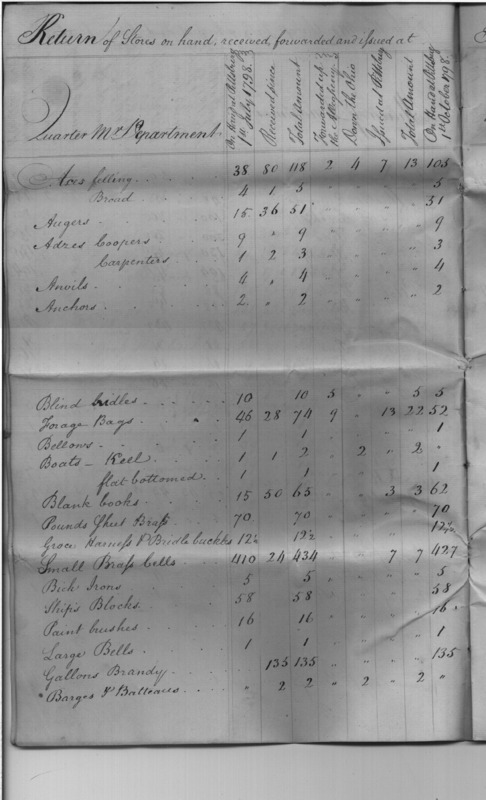 Return of Stores on hand, received, forwarded and issued at
Quarter Mr. Department. On hand at Pittsburg 1st July 1798. Received since Total Amount Forwarded up the Allegheny Down the Ohio Issued at Pittsburg Total Amount On hand at Pittsburg 1st October 1798.
Axes felling 38 80 118 2 4 7 13 105
Broad 4 1 5 " " " " 5
Augers 15 36 51 " " " " 51
Adzes Coopers 9 " 9 " " " " 9
Carpenters 1 2 3 " " " " 3
Anvils 4 " 4 " " " " 4
Anchors 2 " 2 " " " " 2
Blind bridles 10 10 5 " " 5 5
Forage Bags 46 28 74 9 " 13 22 52
Bellows 1 1 " " " " 1
Boats - Keel 1 1 2 " 2 " 2 "
flat bottomed 1 1 " " " " 1
Blank books 15 50 65 " " 3 3 62
Pounds Sheet Brass 70 70 " " " " 70
Groce Harness & Bridle buckles 12½ 12½ " " " " 12½
Small Brass bells 410 24 434 " " 7 7 427
Bick Irons 5 5 " " " " 5
Ship's Blocks 58 58 " " " " 58
Paint brushes 16 16 " " " " 16
Large Bells 1 1 " " " " 1
Gallons Brandy 135 135 " " " " 135
Barges & Batteaus " 2 2 " 2 " 2 "